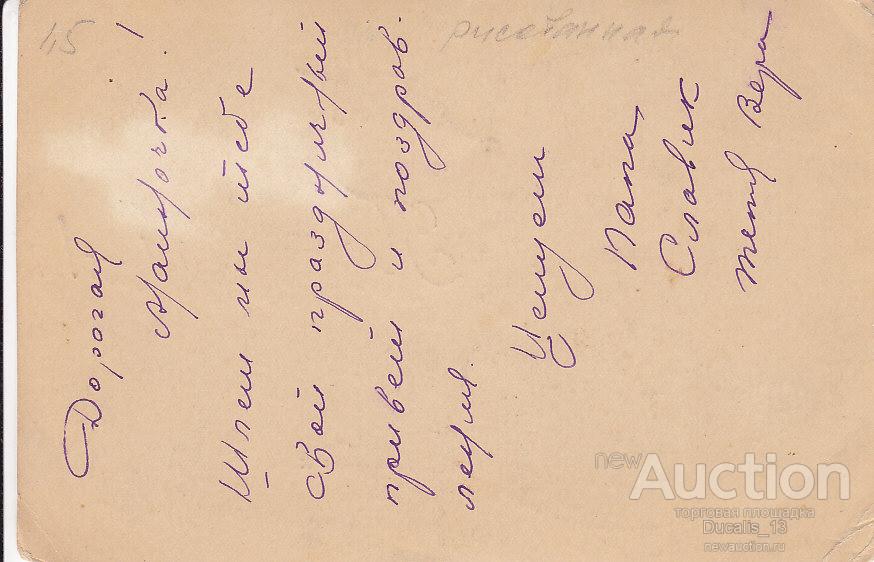 15
рисованная
Дорогая
!
Шлем мы тебе
свой праздничный
привет и поздрав-
ления.
Целуем
Папа,
Славик
тетя Вера
newAuction
торговая площадка
Ducalis_13
newauction.ru